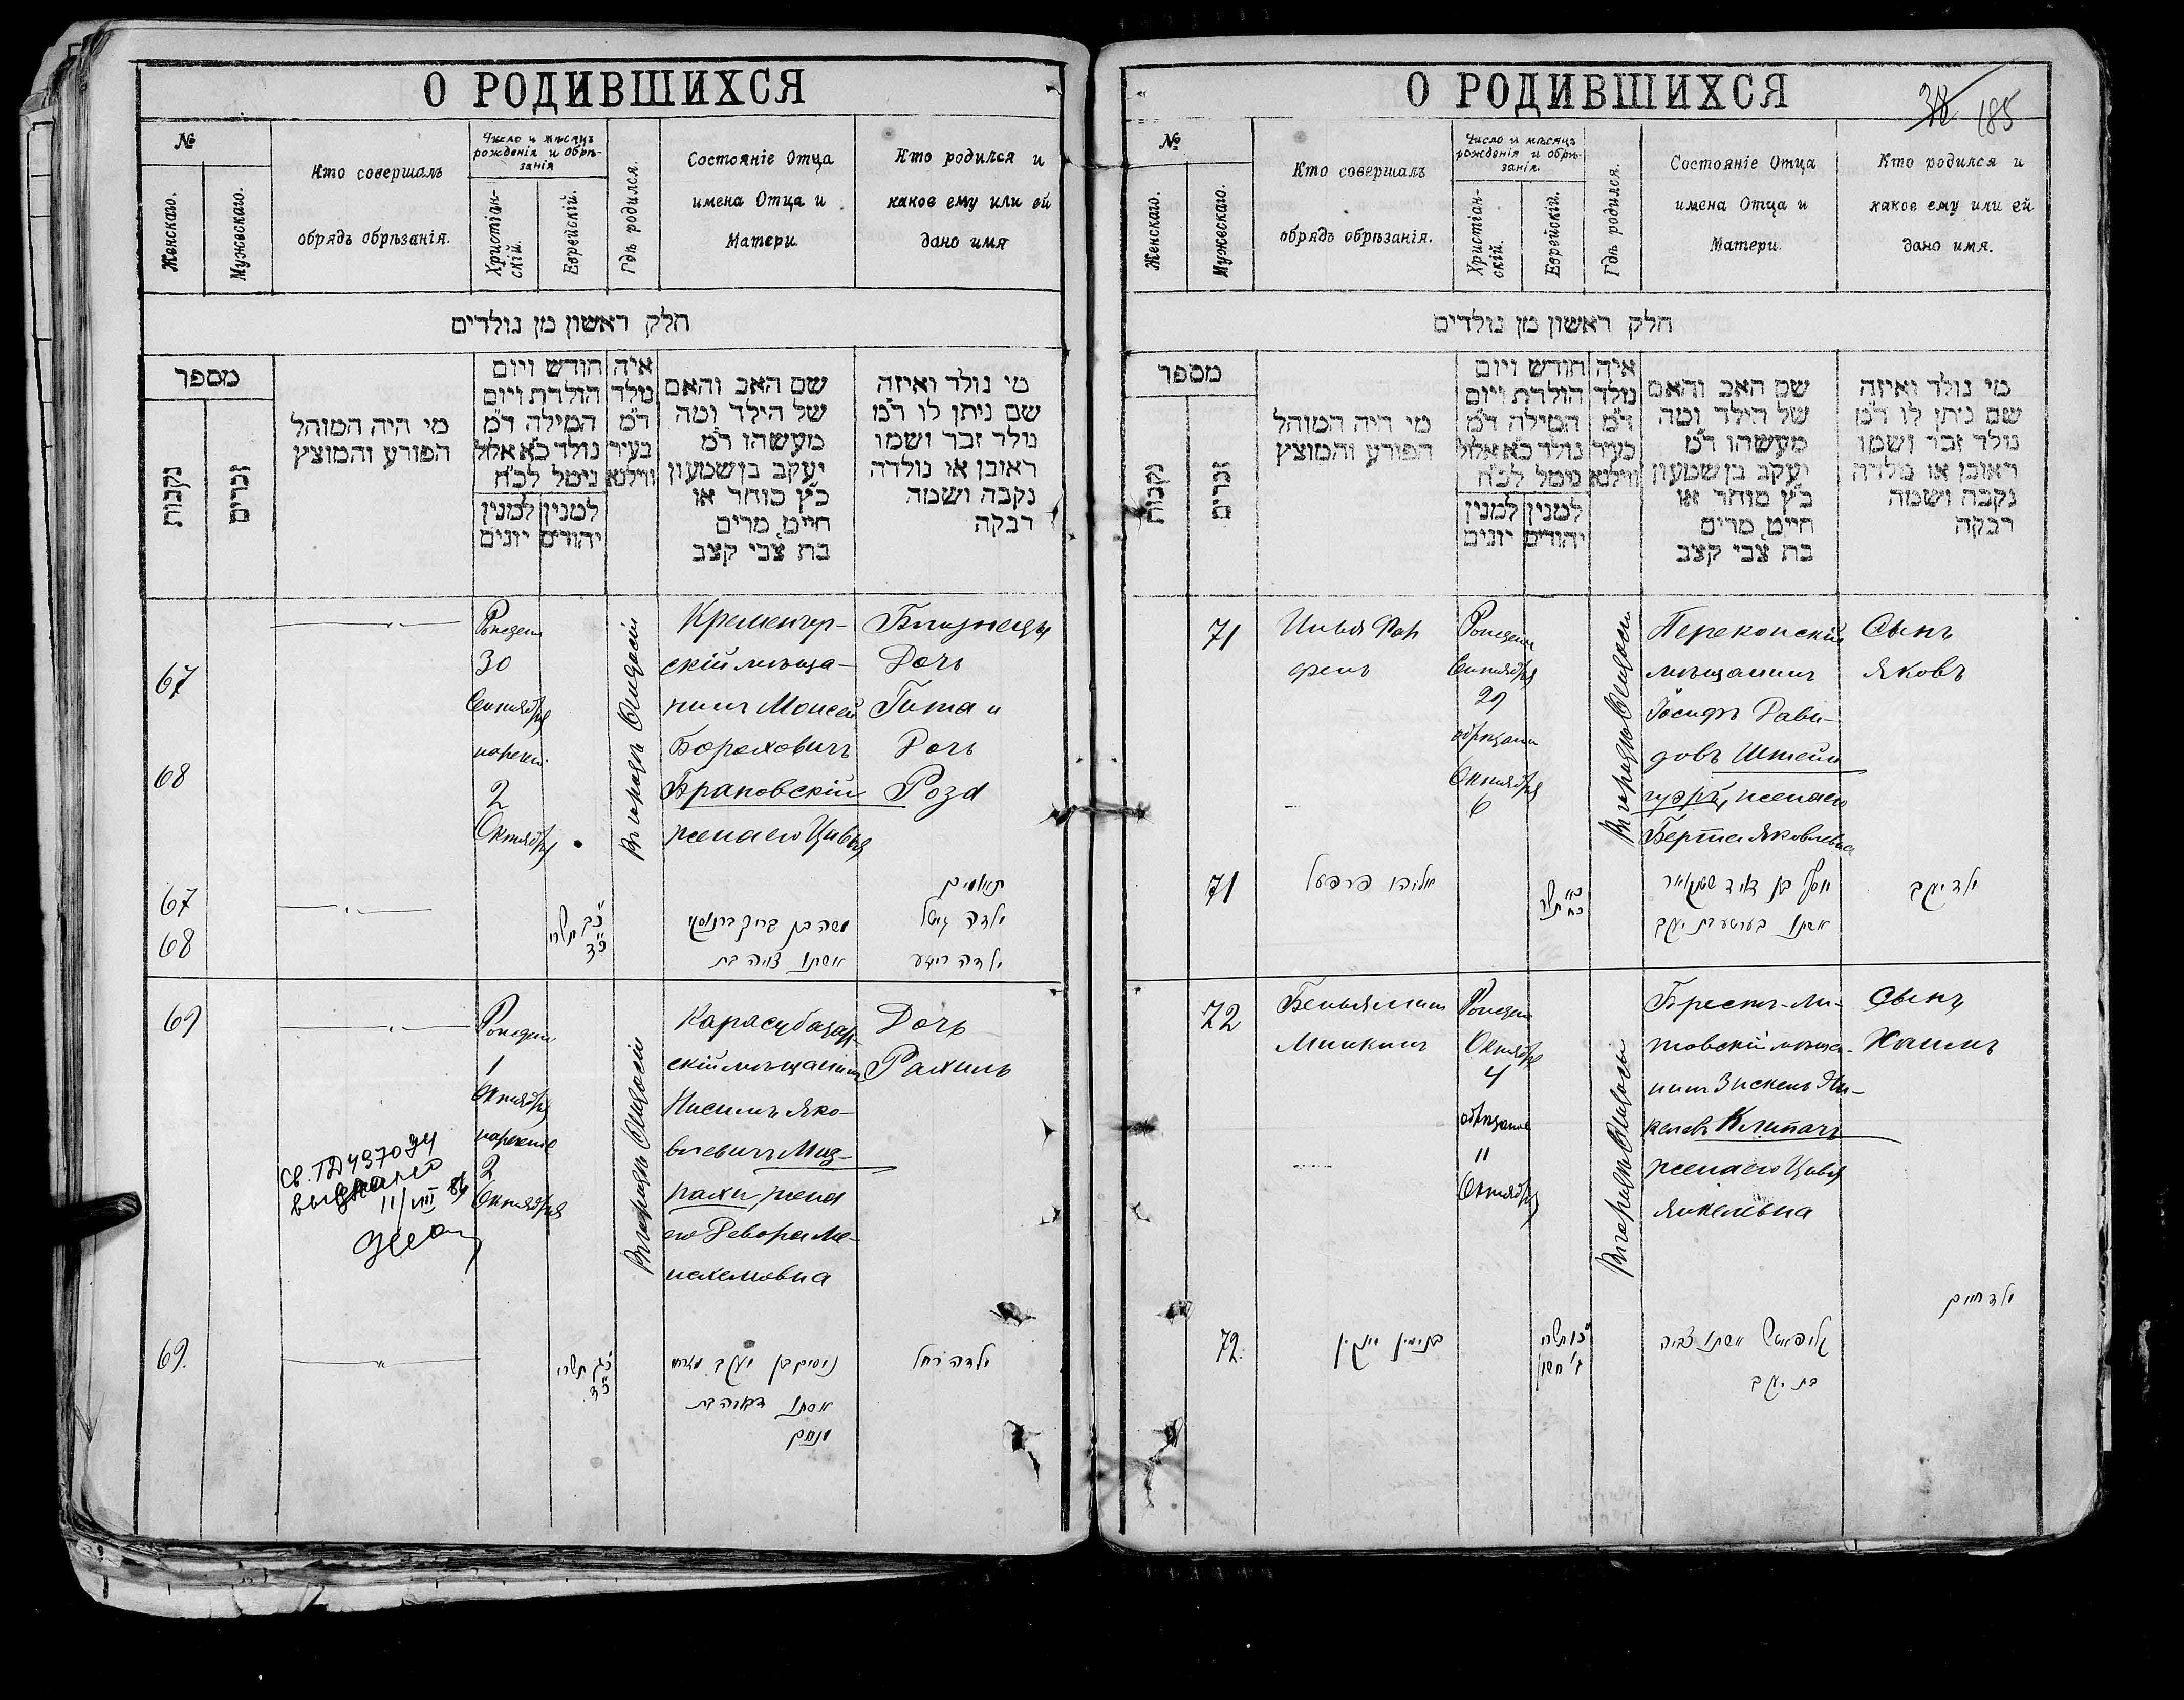 О РОДИВШИХСЯ
№
Женскаго.
Мужескаго.
Кто совершалъ
обрядъ обрѣзанія.
Число и мѣсяцъ
рожденія и обрѣ-
занія
Христіан-
скій.
Еврейскій.
Гдѣ родился.
Состояніе Отца
имена Отца и
Матери
Кто родился и
какое ему или ей
дано имя
חלק ראשון מן נולדים
מספר
נקבות
זכרים
מי היה המוהל
הפורע והמוצץ
חודש ויום
הולדת ויום
המילה ד״מ
נולד כ״א אלול
נימל לכ״ח
למנין יהודים
למנין יונים
איה
נולד
ד״מ
בעיר
ווילנא
שם האב והאם
של הילד ומה
מעשהו ד״מ
יעקב בן שמעון
כ״ץ סוחר או
חייט מרים
בת צבי קצב
מי נולד ואיזה
שם ניתן לו ד״מ
נולד זכר ושמו
ראובן או נולדה
נקבה ושמה
רבקה
67
68
30
Сентября
2
Октября
Кременчуг-
скій мѣща-
нинъ Моисей
Бороховичъ
Браковскій
жена его Цивья
Близнецы
Дочь
Гита и
Дочь
Роза
67
68
כ״ב תשרי
כ״ד
משה בן
אשתו צויה בת
תאומים
ילדה גיטל
ילדה רויזע
69
1
Октября
2
Октября
Карасубазар-
скій мѣщанинъ
Нисимъ Яко-
влевичъ Миз-
рахи, жена
его Девора Ме-
нахемовна
Дочь
Рахиль
Св. ГД 437094
выдано
11/VIII 86
69.
כ״ג תשרי
כ״ד
ניסים בן יעקב מזרחי
אשתו דבורה בת
מנחם
ילדה רחל
О РОДИВШИХСЯ
38 185
№
Женскаго.
Мужескаго.
Кто совершалъ
обрядъ обрѣзанія.
Число и мѣсяцъ
рожденія и обрѣ-
занія.
Христіан-
скій.
Еврейскій.
Гдѣ родился.
Состояніе Отца
имена Отца и
Матери
Кто родился и
какое ему или ей
дано имя.
חלק ראשון מן נולדים
מספר
נקבות
זכרים
מי היה המוהל
הפורע והמוצץ
חודש ויום
הולדת ויום
המילה ד״מ
נולד כ״א אלול
נימל לכ״ח
למנין יהודים
למנין יונים
איה
נולד
ד״מ
בעיר
ווילנא
שם האב והאם
של הילד ומה
מעשהו ד״מ
יעקב בן שמעון
כ״ץ סוחר או
חייט מרים
בת צבי קצב
מי נולד ואיזה
שם ניתן לו ד״מ
נולד זכר ושמו
ראובן או נולדה
נקבה ושמה
רבקה
71
Сентября
29
Октября
6
Перекопскій
мѣщанинъ
Іосифъ Дави-
довъ Штейн
жена его
Берта Яковлевна
Сынъ
Яковъ
71
אליהו
כ״א
כ״ח תשרי
יוסף בן דוד
אשתו בערטע בת יעקב
ילד יעקב
72
Беньяминъ
Минкинъ
Октября
4
11
Октября
Брестъ-Ли-
товскій мѣща-
нинъ Зискель Ян-
келевъ Клипачъ
жена его Цивья
Янкелевна
Сынъ
Хаимъ
72.
בנימין מינקין
כ״ו תשרי
ג׳ חשון
אשתו צביה
בת יעקב
ילד חיים